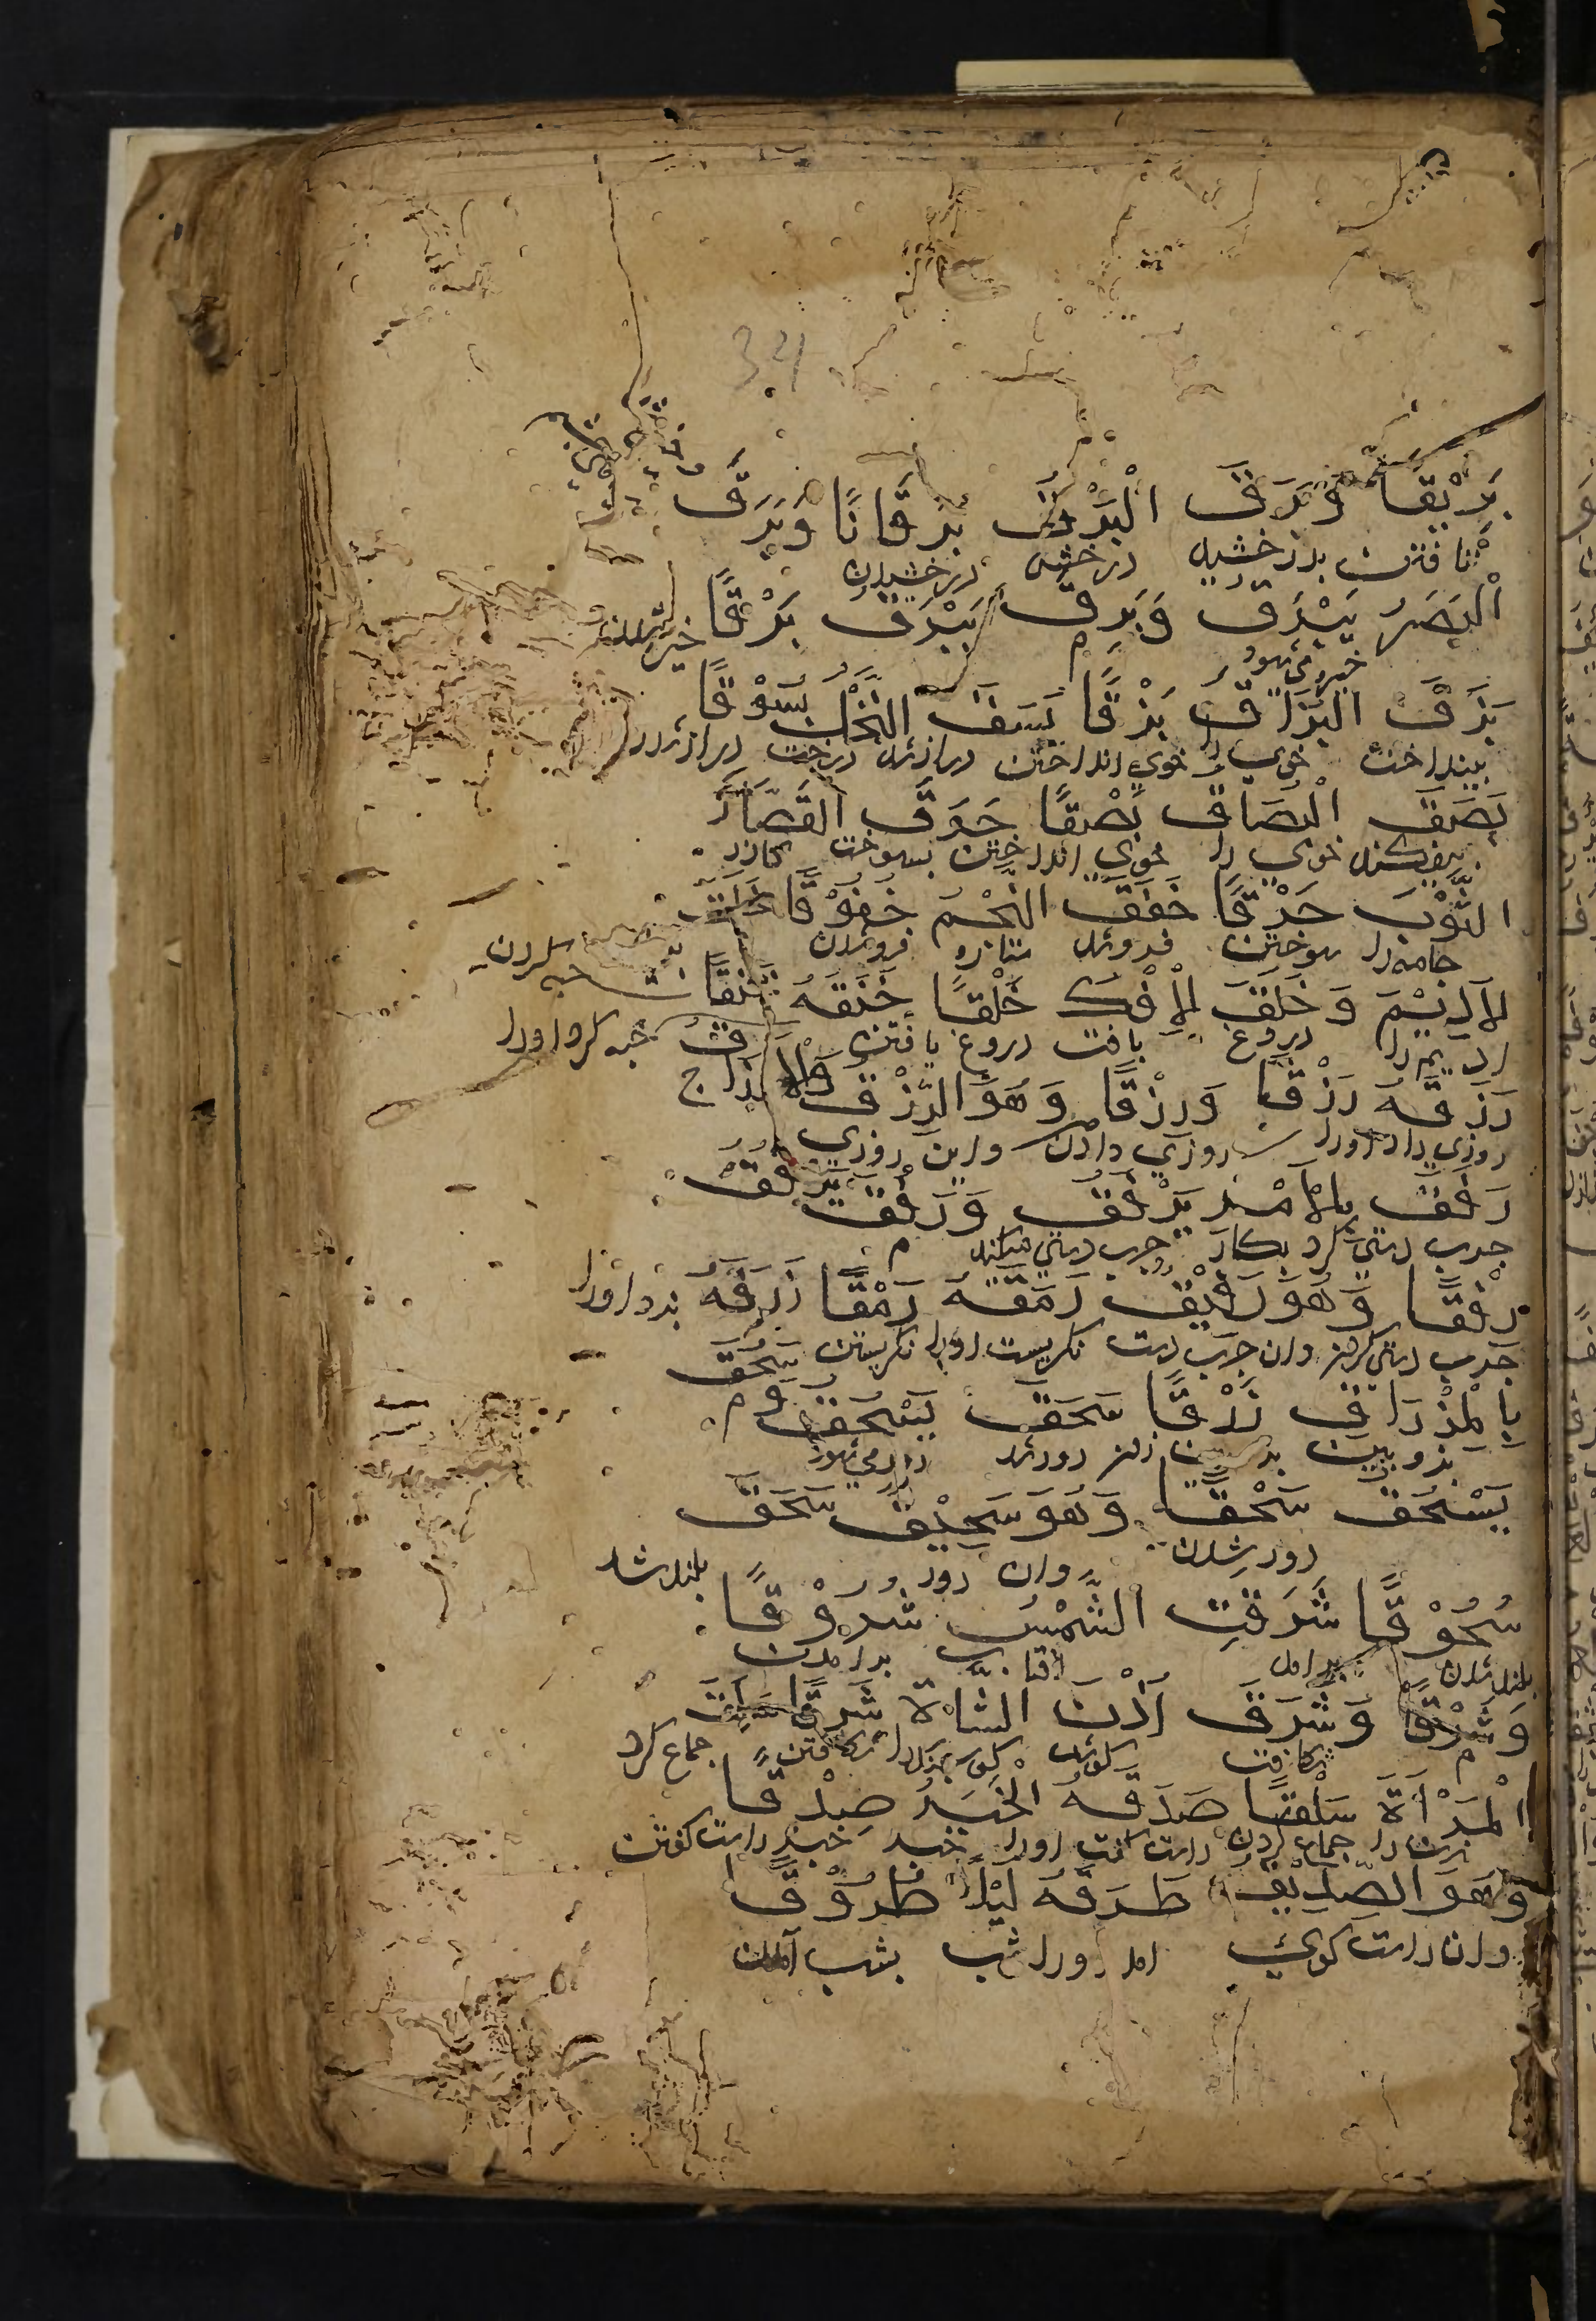 بَرِيْقًا وَبَرَقَ الْبَرْقُ بَرَقَانًا وَبَرَقَ
تافتن بدرخشید درخش درخشیدن
الْبَصَرُ يَبْرَقُ وَبَرِقَ يَبْرَقُ بَرْقًا
خیره می شود
بَزَقَ الْبُزَاقَ بَزْقًا بَسَقَ النَّخْلُ بُسُوْقًا
بینداخت خوی را خوی انداختن دراز شد درخت دراز شدن
بَصَقَ الْبُصَاقَ بَصْقًا حَرَقَ الْقَصَّارُ
بیفکند خوی را خوی انداختن بسوخت کازر
الثَّوْبَ حَرْقًا خَفَقَ النَّجْمُ خُفُوْقًا خَلَقَ
جامه را سوختن فروشد ستاره فروشدن
الْاَدِيْمَ وَخَلَقَ الْاِفْكَ خَلْقًا خَنَقَهُ خَنْقًا خبه کردن
ادیم را دروغ بافت دروغ بافتن خبه کرد اورا
رَزَقَهُ رَزْقًا وَرِزْقًا وَهُوَ الرِّزْقُ وَالْاَرْزَاقُ ج
روزی داد اورا روزی دادن واین روزی
رَفَقَ بِالْاَمْرِ يَرْفُقُ وَرَفُقَ يَرْفُقُ
چرب دستی کرد بکار چرب دستی میکند م
رِفْقًا وَهُوَ رَفِيْقٌ رَمَقَهُ رَمْقًا زَرَقَهُ بزد اورا
چرب دستی کردن وان چرب دست نکریست اورا نکریستن
بِالْمِزْرَاقِ زَرْقًا سَحَقَ يَسْحَقُ وَسَحُقَ م
بزوبین زدن دور شد دور می شود
يَسْحَقُ سُحْقًا وَهُوَ سَحِيْقٌ سَحَقَ
دور شدن وان دور بلند شد
سُحُوْقًا شَرَقَتِ الشَّمْسُ شُرُوْقًا
بلند شدن برامد افتاب برامدن
وَشَرْقًا وَشَرَقَ اُذْنَ الشَّاةِ شَرْقًا سَلَقَ
م شکافت کوش کوسپند را شکافتن جماع کرد
الْمَرْاَةَ سَلْقًا صَدَقَهُ الْخَبَرَ صِدْقًا
زن را جماع کردن راست کفت اورا خبر خبر راست کفتن
وَهُوَ الصِّدِّيْقُ طَرَقَهُ لَيْلًا طُرُوْقًا
وان راست کوی امد اورا شب بشب آمدن